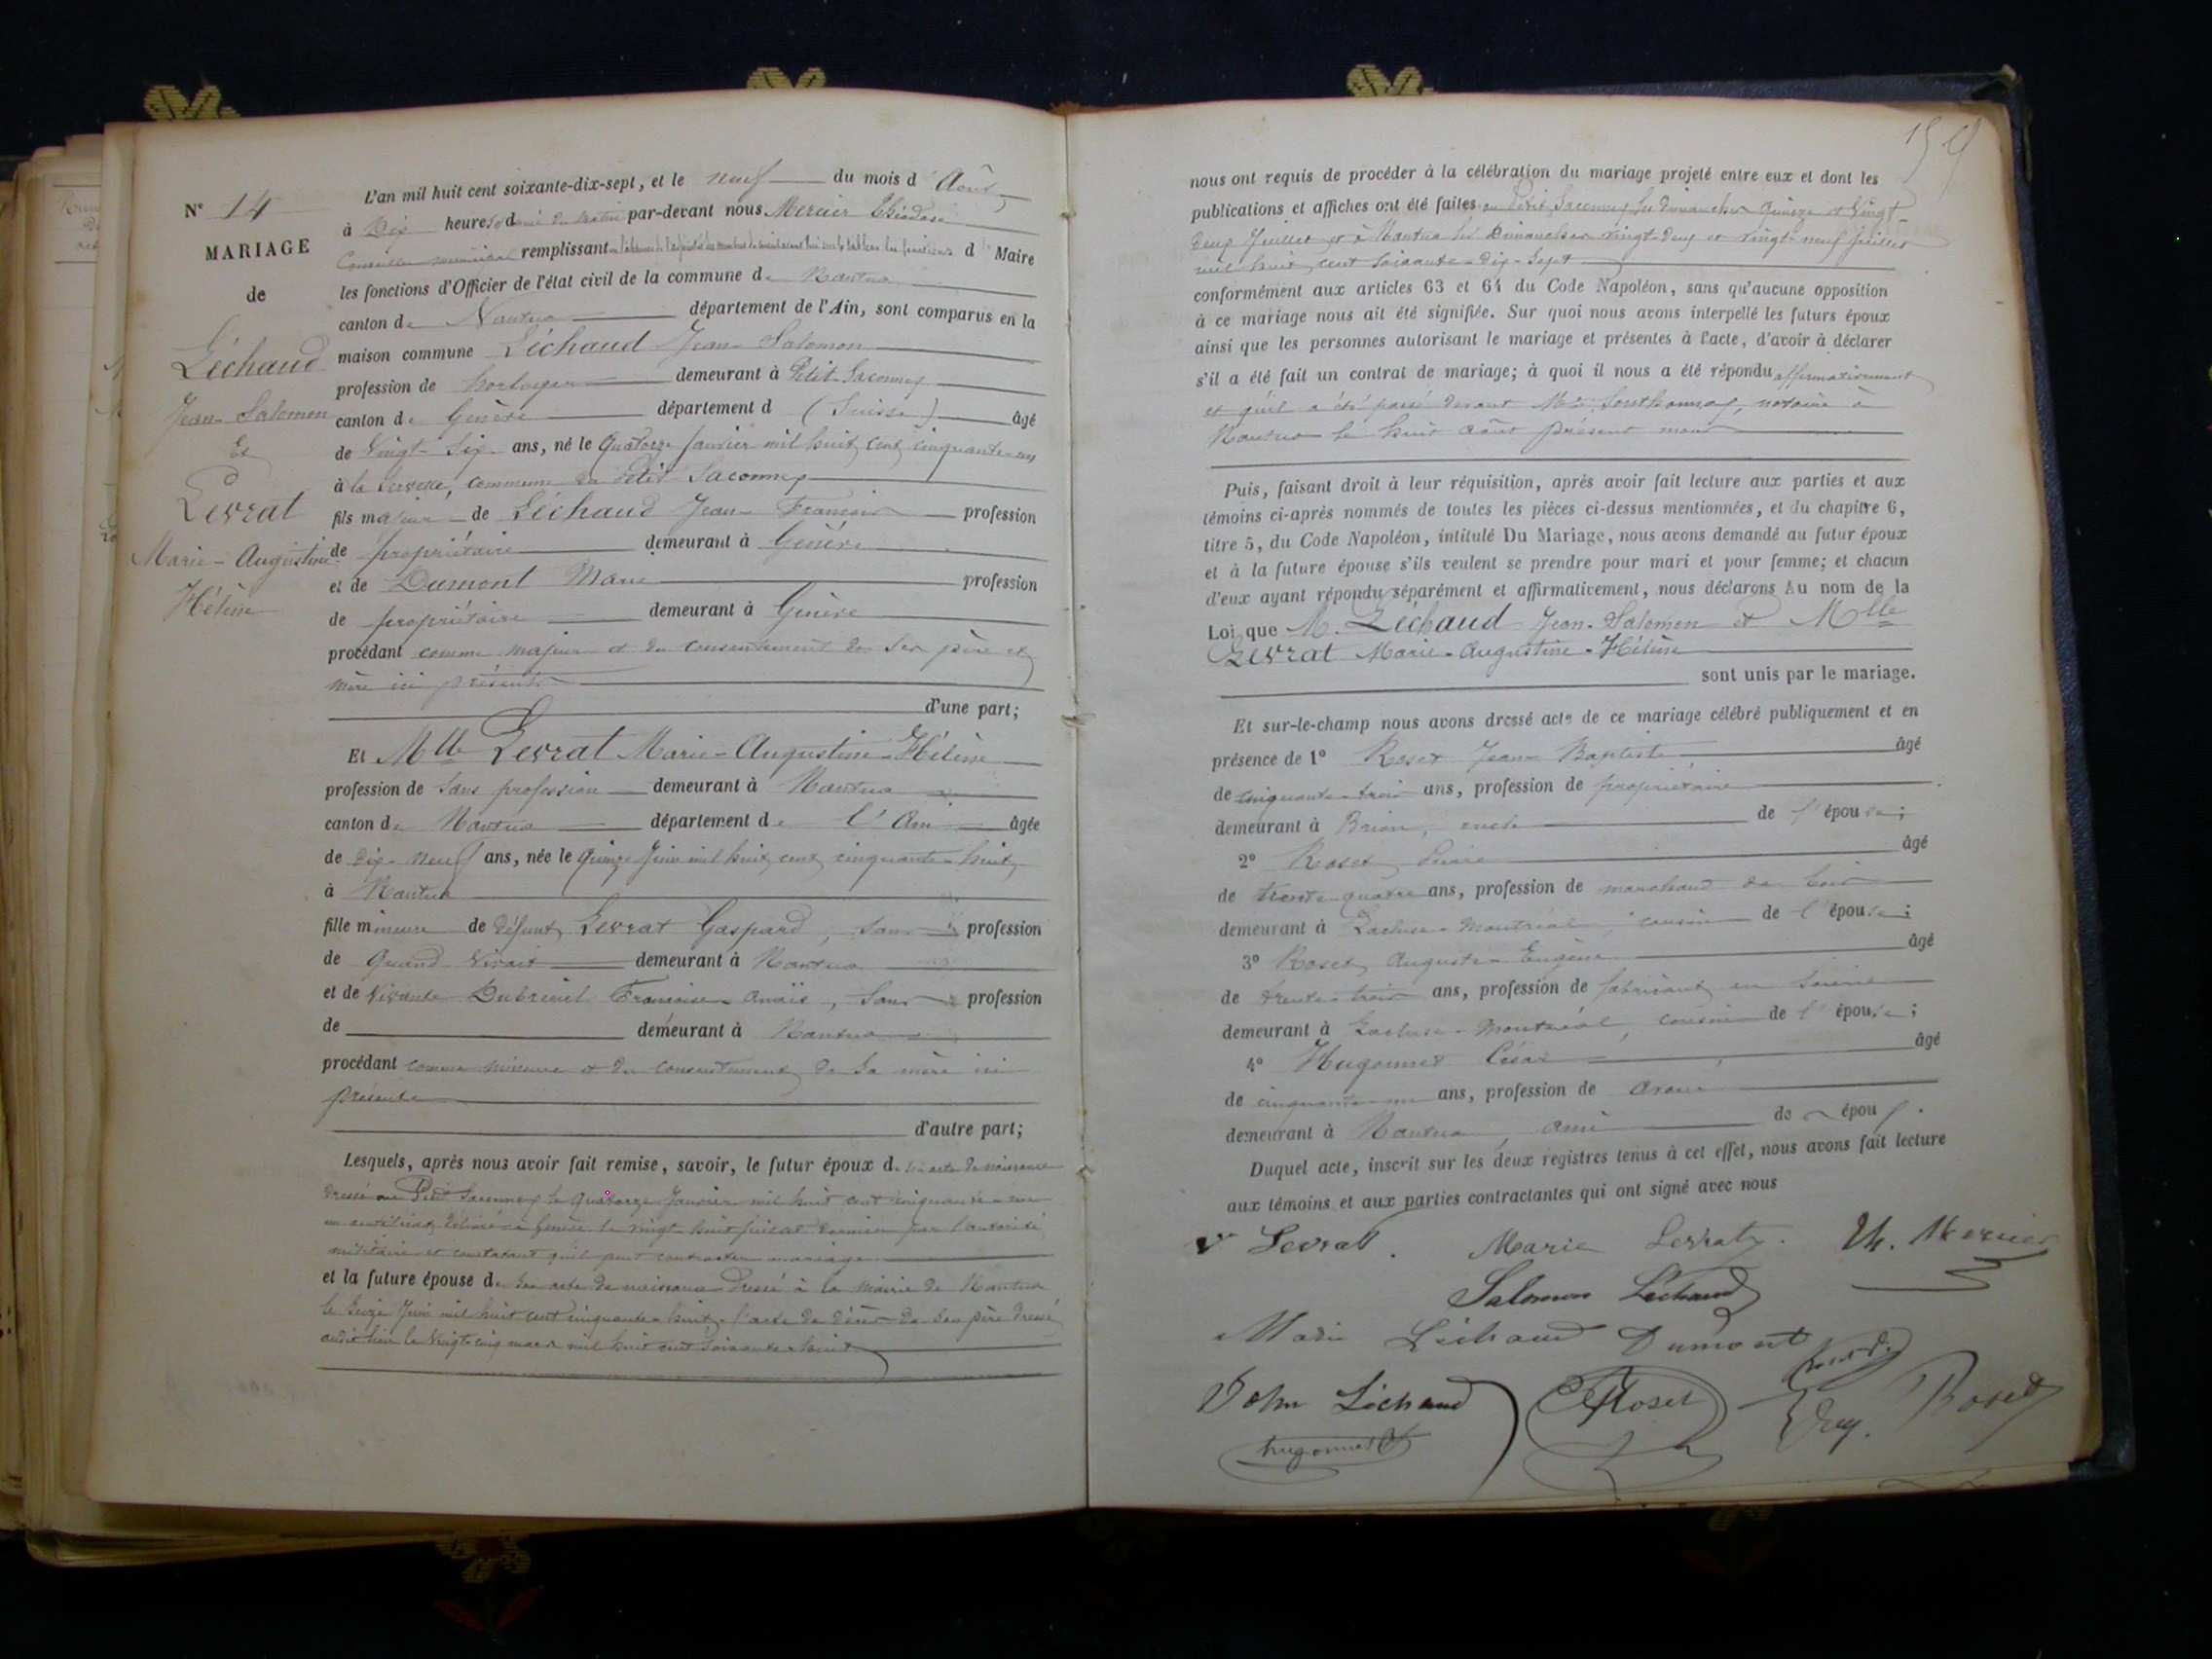 N° 14
MARIAGE
de
Léchaud
Jean-Salomon
Et
Levrat
Marie-Augustine
Hélène
L'an mil huit cent soixante-dix-sept, et le neuf du mois d'Août
à Dix heures et demi du matin par-devant nous Mercier Théodose
Conseiller municipal remplissant d Maire
les fonctions d'Officier de l'état civil de la commune de Nantua
canton de Nantua département de l'Ain, sont comparus en la
maison commune Léchaud Jean-Salomon
profession de horloger demeurant à Petit-Saconnex
canton de Genève département d (Suisse) âgé
de Vingt-Six ans, né le Quatorze Janvier mil huit cent cinquante-un
à la Servette, commune du Petit Saconnex
fils majeur de Léchaud Jean-François profession
de propriétaire demeurant à Genève
et de Dumont Marie profession
de propriétaire demeurant à Genève
procédant comme majeur et du consentement de ses père et
mère ici présents
d'une part;
Et Mlle Levrat Marie-Augustine-Hélène
profession de sans profession demeurant à Nantua
canton de Nantua département de l'Ain âgée
de dix-neuf ans, née le Quinze Juin mil huit cent cinquante-huit
à Nantua
fille mineure de défunt Levrat Gaspard, sans profession
de Quand vivait demeurant à Nantua
et de vivante Dubreuil Françoise-Anaïs, sans profession
de demeurant à Nantua
procédant comme mineure et du consentement de sa mère ici
présente
d'autre part;
Lesquels, après nous avoir fait remise, savoir, le futur époux de son acte de naissance
dressé au Petit Saconnex le Quatorze Janvier mil huit cent cinquante-un
un certificat délivré à Genève le vingt-huit juillet dernier par l'autorité
militaire et constatant qu'il peut contracter mariage
et la future épouse de son acte de naissance dressé à la mairie de Nantua
le Seize Juin mil huit cent cinquante-huit, l'acte de décès de son père dressé
audit lieu le vingt-cinq mars mil huit cent soixante-huit
159
nous ont requis de procéder à la célébration du mariage projeté entre eux et dont les
publications et affiches ont été faites au Petit Saconnex les dimanches Quinze et Vingt-
deux Juillet et à Nantua les Dimanches vingt-deux et vingt-neuf Juillet
mil huit cent soixante-dix-sept
conformément aux articles 63 et 64 du Code Napoléon, sans qu'aucune opposition
à ce mariage nous ait été signifiée. Sur quoi nous avons interpellé les futurs époux
ainsi que les personnes autorisant le mariage et présentes à l'acte, d'avoir à déclarer
s'il a été fait un contrat de mariage; à quoi il nous a été répondu affirmativement
et qu'il a été passé devant Me Southonnax, notaire à
Nantua le huit août présent mois
Puis, faisant droit à leur réquisition, après avoir fait lecture aux parties et aux
témoins ci-après nommés de toutes les pièces ci-dessus mentionnées, et du chapitre 6,
titre 5, du Code Napoléon, intitulé Du Mariage, nous avons demandé au futur époux
et à la future épouse s'ils veulent se prendre pour mari et pour femme; et chacun
d'eux ayant répondu séparément et affirmativement, nous déclarons Au nom de la
Loi que M. Léchaud Jean-Salomon et Mlle
Levrat Marie-Augustine-Hélène
sont unis par le mariage.
Et sur-le-champ nous avons dressé acte de ce mariage célébré publiquement et en
présence de 1° Roset Jean-Baptiste âgé
de cinquante-trois ans, profession de propriétaire
demeurant à Brion, oncle de l'épouse;
2° Roset âgé
de trente-quatre ans, profession de marchand de bois
demeurant à Lacluse-Montréal, cousin de l'épouse;
3° Roset Auguste-Eugène âgé
de trente-trois ans, profession de fabricant en soierie
demeurant à Lacluse-Montréal, cousin de l'épouse;
4° Hugonnet César âgé
de cinquante-un ans, profession de avoué
demeurant à Nantua ami de épou .
Duquel acte, inscrit sur les deux registres tenus à cet effet, nous avons fait lecture
aux témoins et aux parties contractantes qui ont signé avec nous
Ve Levrat. Marie Levrat. Th. Mercier
Salomon Léchaud
Marie Léchaud Dumont
John Léchaud Roset Eug. Roset
hugonnet